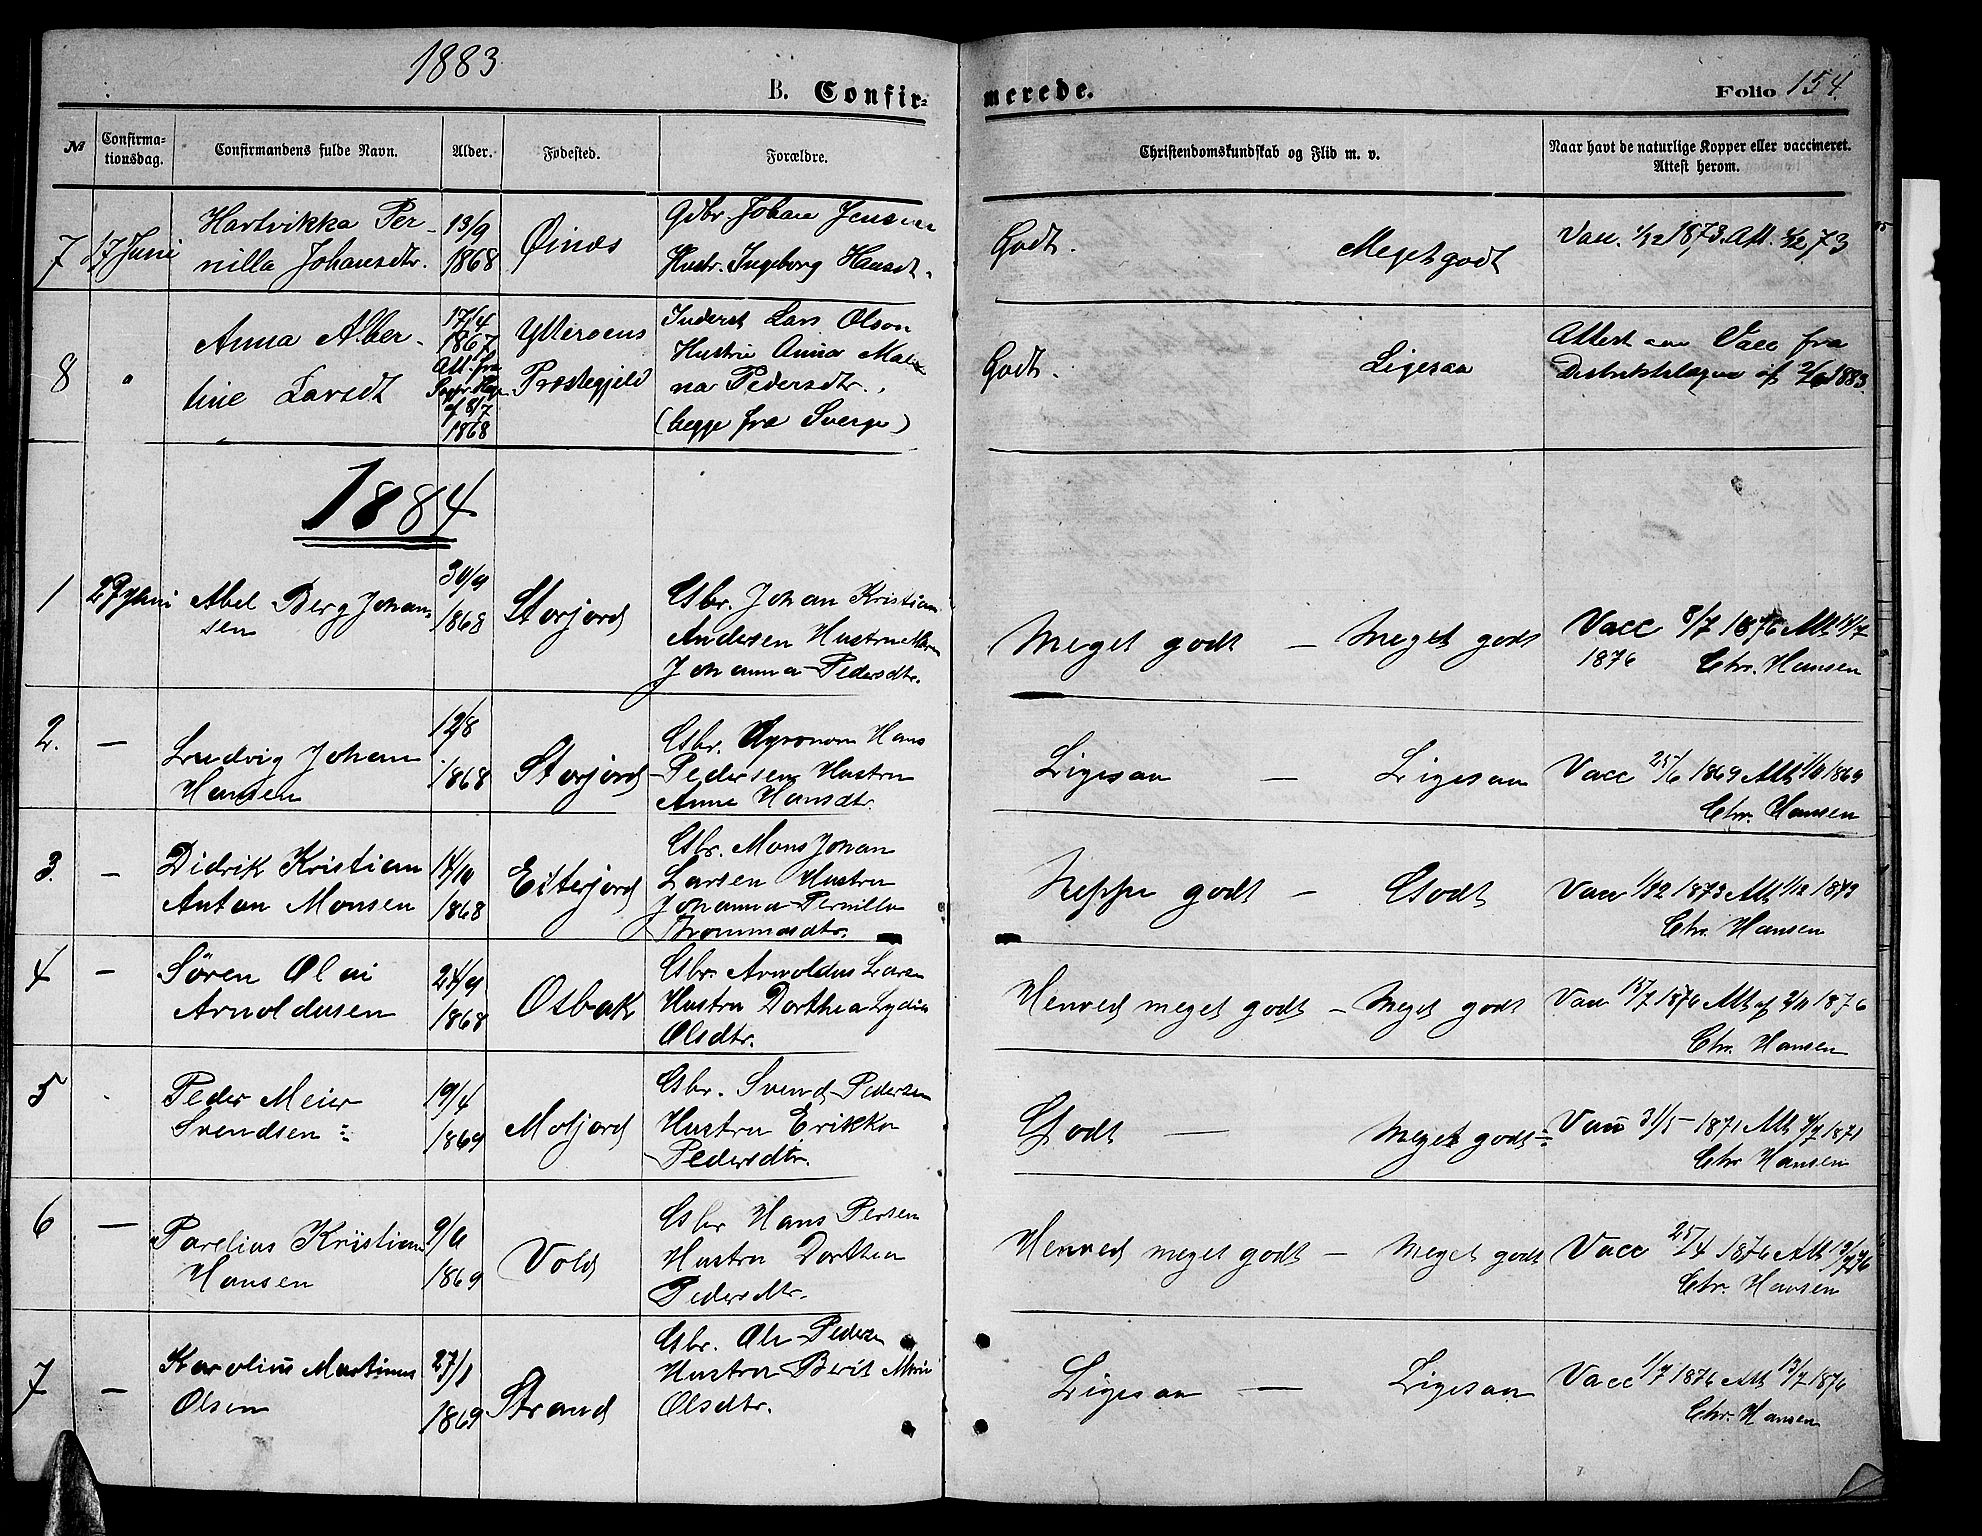 1883
B. Confir-
merede.
Folio 154.
№
Confirma-
tionsdag.
Confirmandens fulde Navn.
Alder.
Fødested.
Forældre.
Christendomskundskab og Flid m. v.
Naar havt de naturlige Kopper eller vaccineret.
Attest herom.
7
17 Juni
Hartvikka Per-
nilla Johansdtr.
13/9
1868
Øinæs
Gdbr. Johan Jensen
Hustr. Ingeborg Hansdt.
Godt.
Meget godt
Vac. 1/12 1873. Att. 1/12 73
8
"
Anna Alber-
tine Larsdt
17/4
1867
Att. fra
af 8/7
1868
Ytterøens
Præstegjeld
Inderst Lars Olson
Hustru Anna Mag
na Pedersdtr.,
(begge fra Sverge)
Godt.
Ligesaa
Attest om Vacc fra
Distriktslægen af 2/6 1883
1884
1
27 Juni
Abel Berg Johan-
sen
30/9
1868
Storjord
Gbr. Johan Kristian
Andersen Hustru Maren
Johanna Pedersdtr.
Meget godt — Meget godt
Vacc 8/7 1876 Att 11/7
1876 Chr. Hansen
2.
—
Ludvig Johan
Hansen
12/8
1868
Storjord
Gbr. Agronom Hans
Pedersen Hustru
Anne Hansdtr.
Ligesaa — Ligesaa
Vacc 25/6 1869 Att 1869
Chr. Hansen
3.
—
Didrik Kristian
Anton Monsen
14/10
1868
Eiterjord
Gbr. Mons Johan
Larsen Hustru
Johanna Pernilla
Thommasdtr.
Neppe godt — Godt
Vacc 1/12 1873 Att 1/12 1873
Chr. Hansen
4
—
Søren Olai
Arnoldusen
24/9
1868
Osbak
Gbr Arnoldus Larsen
Hustru Dorthea Lydia
Olsdtr.
Henved meget godt — Meget godt
Vacc 15/7 1876 Att af 2/11 1876
Chr. Hansen
5
Peder Meier
Svendsen
19/4
1869
Moljord
Gbr. Svend Pedersen
Hustru Erikka
Pedersdtr.
Godt — Meget godt
Vacc 31/5 - 1871 Att 3/7 1871
Chr Hansen
6
—
Parelius Kristian
Hansen
9/6
1869
Vold
Gbr Hans Persen
Hustru Dorthea
Pedersdtr.
Henved meget godt — Meget godt
Vacc 25/4 1876 Att 13/7 76
Chr. Hansen
7
—
Karolius Martinus
Olsen
27/1
1869
Strand
Gbr. Ole Pedersen
Hustru Berit Marie
Olsdtr.
Ligesaa — Ligesaa
Vacc 1/7 1876 Att 13/7 1876
Chr. Hansen